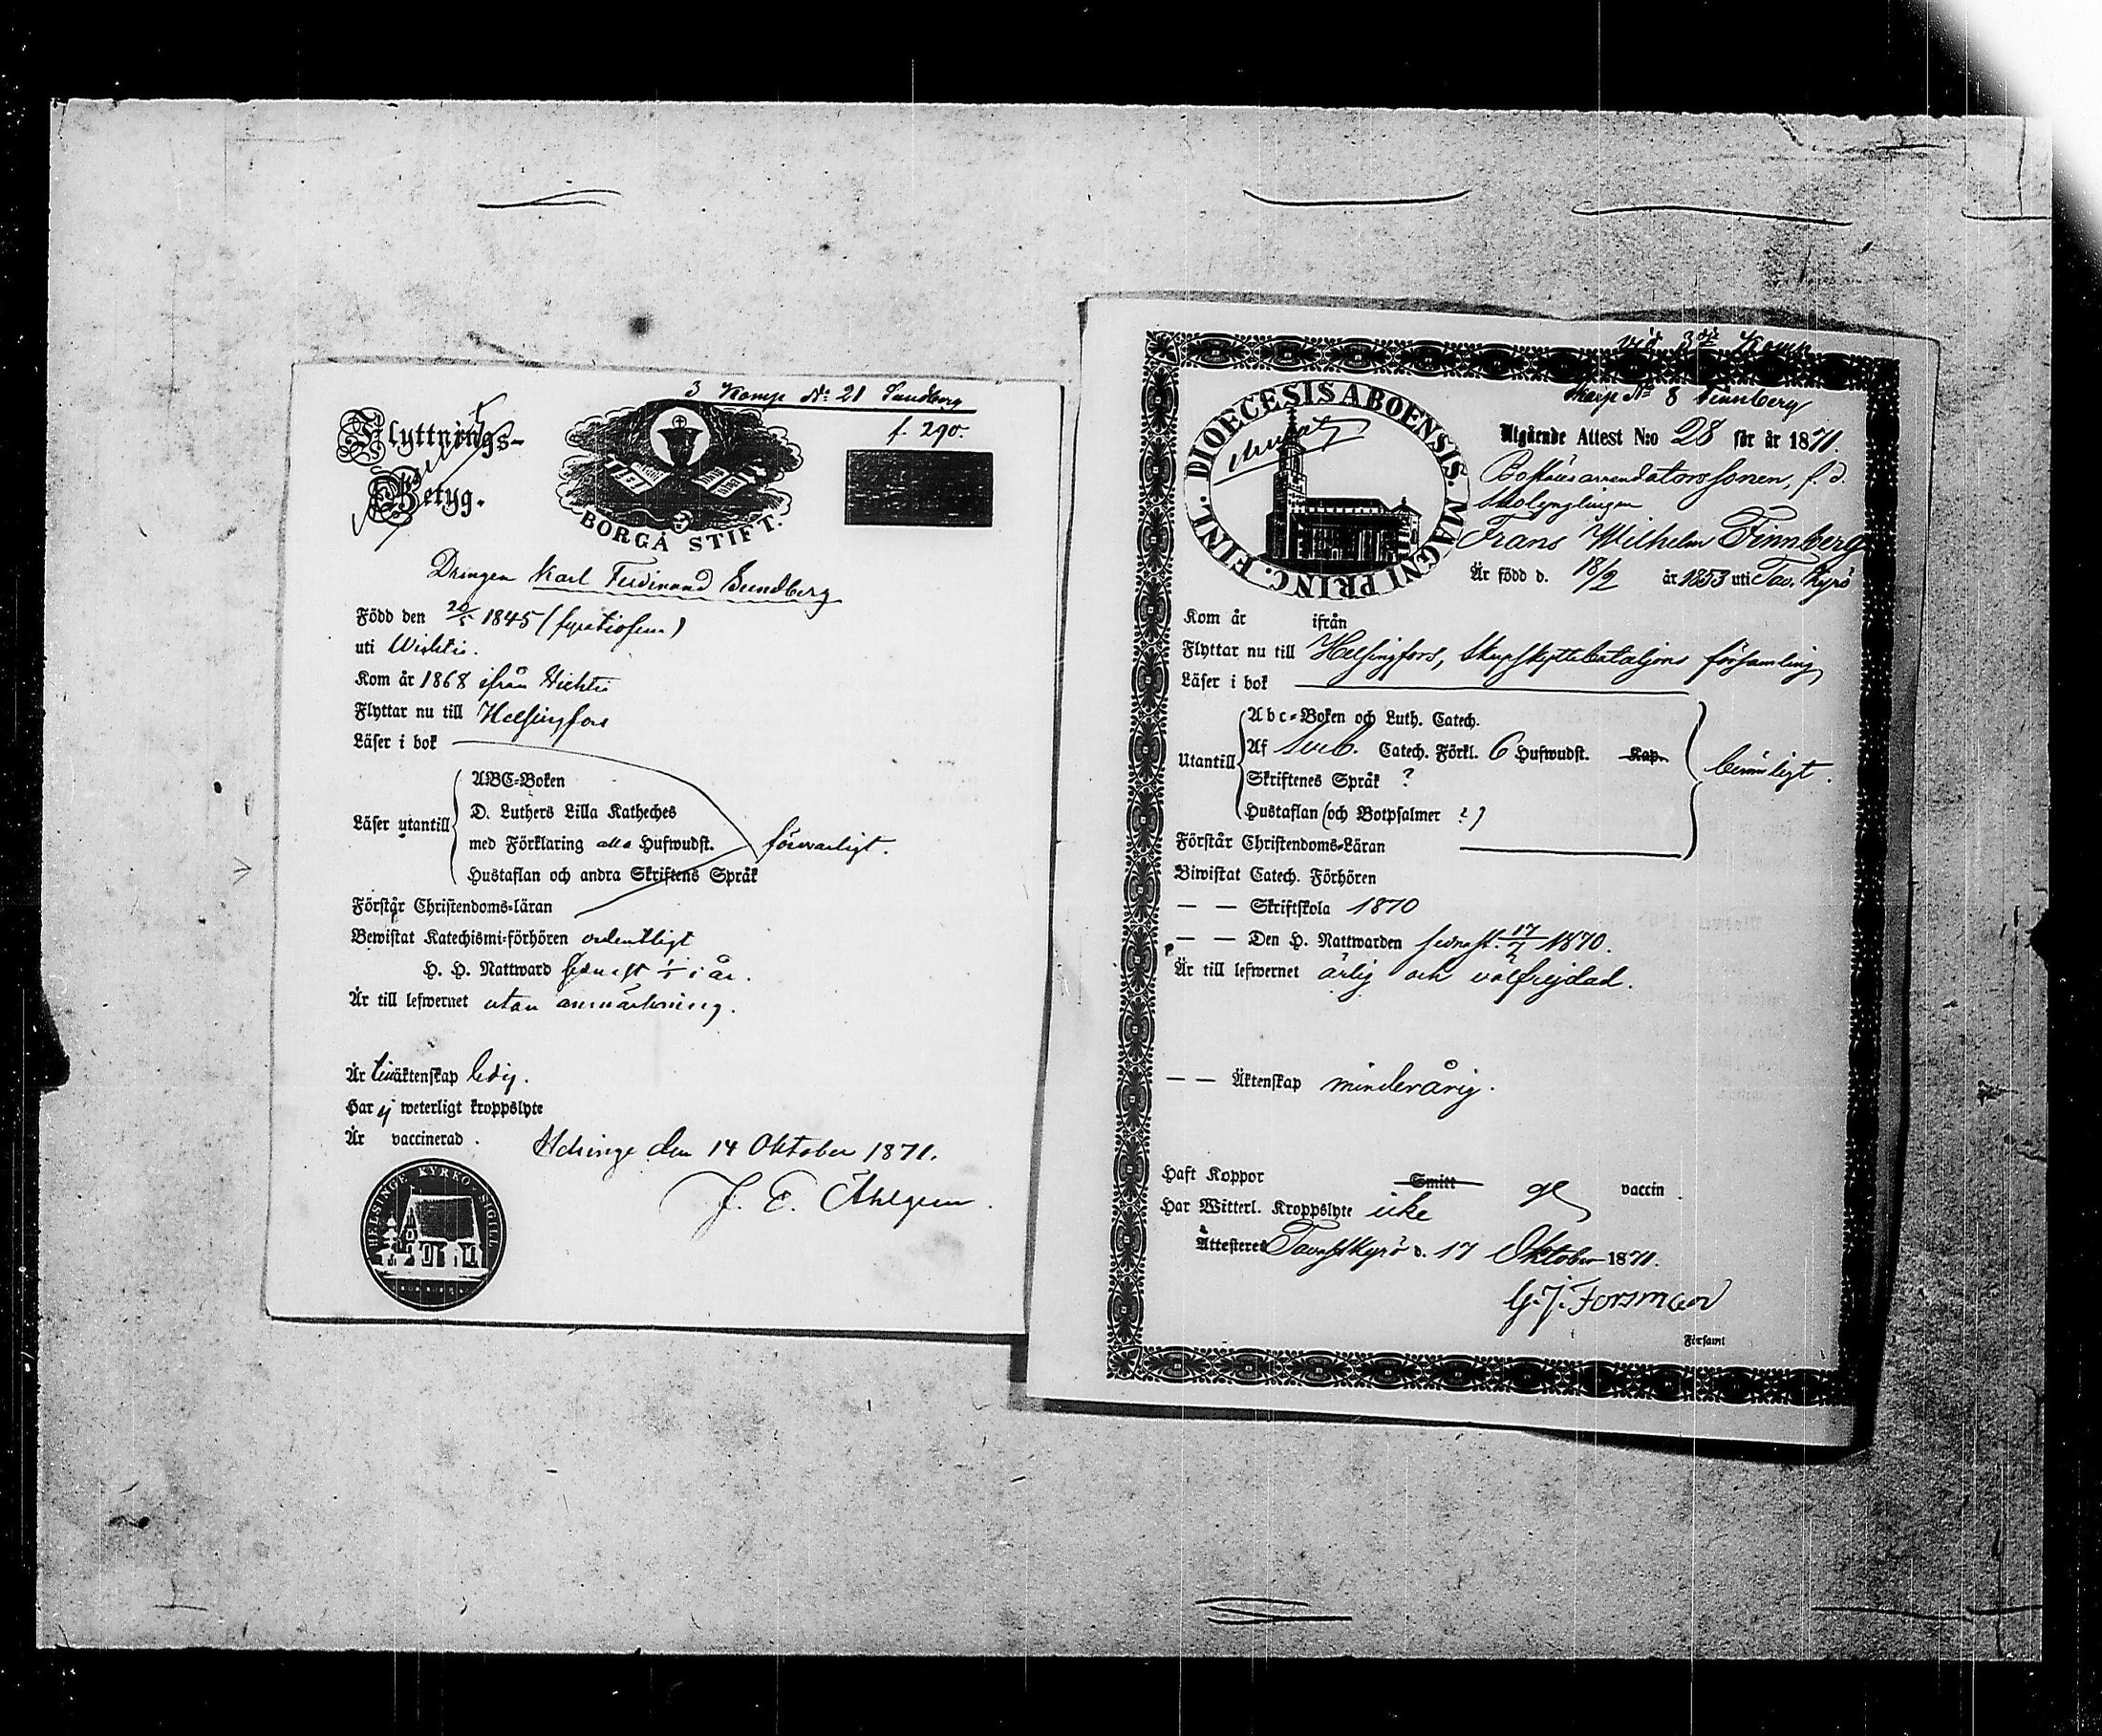 3 Komp No 21 Sundberg
f. 290.
Flyttnings-
Betyg.
BORGÅ STIFT.
Drängen Karl Ferdinand Sundberg
Född den 20/5 1845 (fyratiofem)
uti Wichtis.
Kom år 1868 ifrån Wichtis
Flyttar nu till Helsingfors
Läser i bok
ABC-Boken
D. Luthers Lilla Katheches
Läser utantill
med Förklaring alla Hufwudst.
försvarligt.
Hustaflan och andra Skriftens Språk
Förstår Christendoms-läran
Bewistat Katechismi-förhören ordentligt
H. H. Nattward senast i år.
Är till lefwernet utan anmärkning.
Är till äktenskap ledig.
Har ej weterligt kroppslyte
Är vaccinerad.
Helsinge den 14 Oktober 1871.
J. E. Åhlgren.
HELSINGE KYRKO SIGILL
vid 3dje Komp
Skarp No 8 Finnberg
DIOECESIS ABOENSIS. MAGNI PRINC. FINL.
Utgående Attest N:o 28 för år 1871.
Boställsarrendatorssonen, f. d.
Skolynglingen
Frans Wilhelm Finnberg
Är född d. 18/2 år 1853 uti Tav. Kyrö
Kom år ifrån
Flyttar nu till Helsingfors, Skarpskyttebataljons församling
Läser i bok
Abc-Boken och Luth. Catech.
Utantill
Af Catech. Förkl. 6 Hufwudst. Kap.
Skriftenes Språk ?
Hustaflan (och Botpsalmer ?)
Förstår Christendoms-Läran
Biwistat Catech. Förhören
— — Skriftskola 1870
— — Den H. Nattwarden senast 17/7 1870.
Är till lefwernet ärlig och välfrejdad.
— — Äktenskap minderårig.
Haft Koppor Smitt vaccin
Har Witterl. Kroppslyte icke
Attesteres Tavastkyrö d. 17 Oktober 1871.
G. J. Forsman